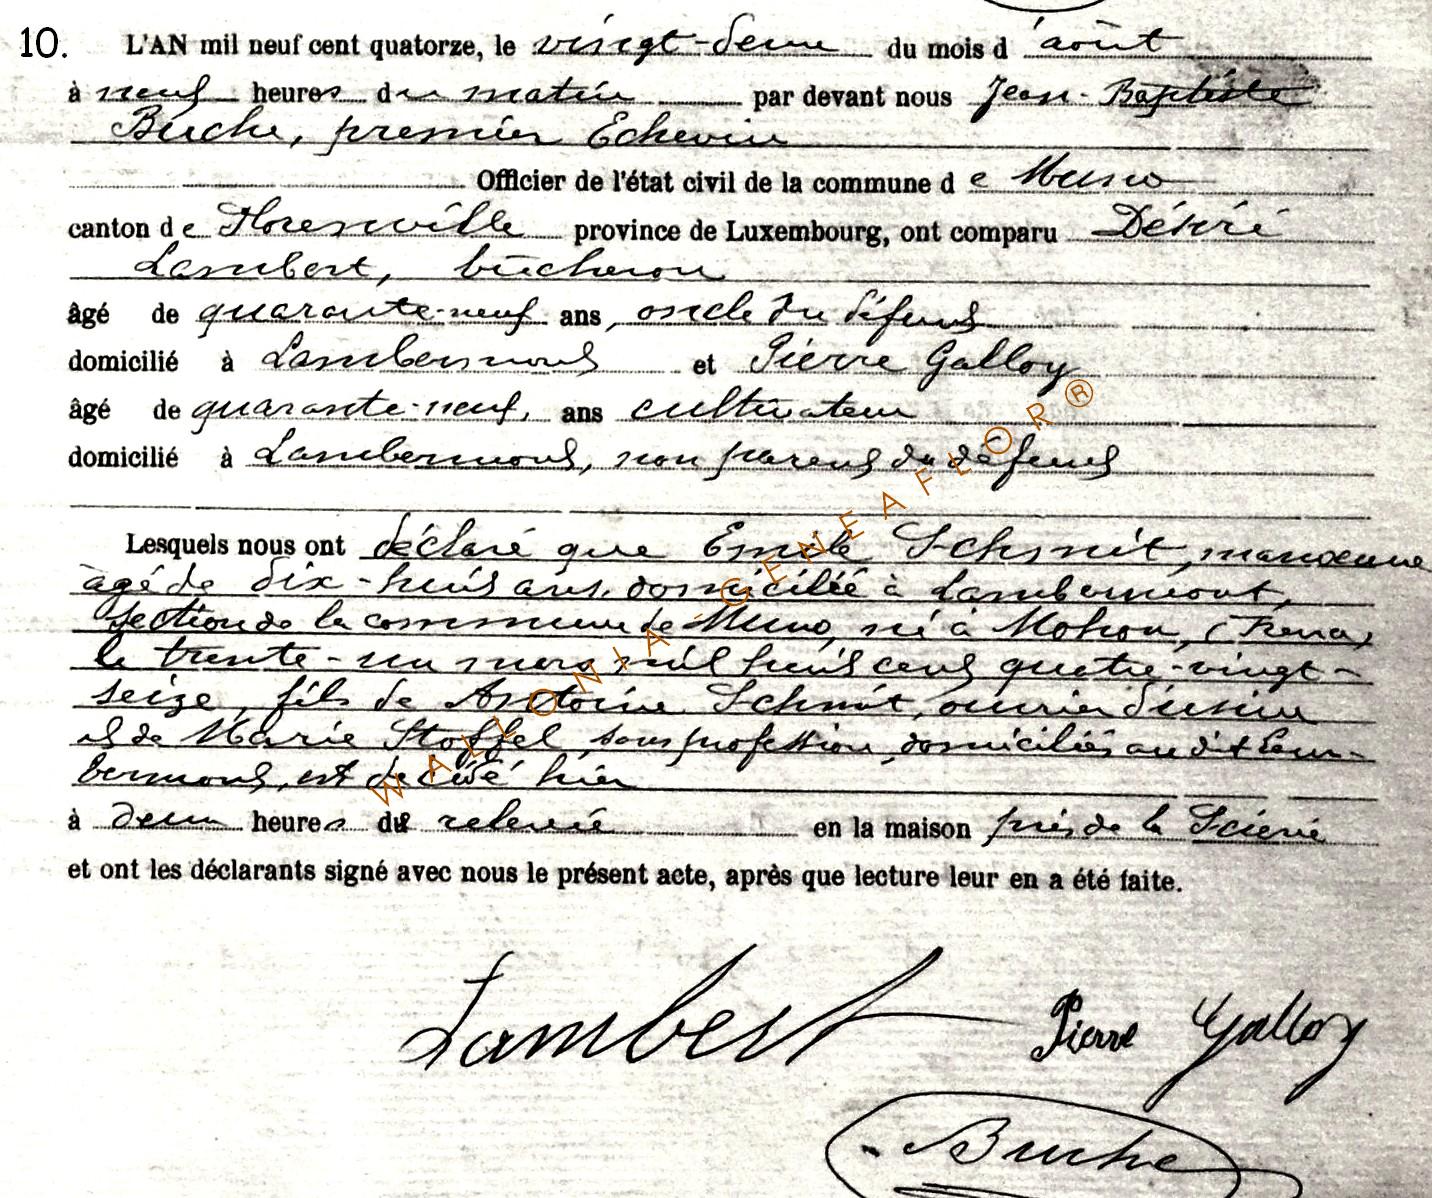 10. L'AN mil neuf cent quatorze, le vingt-deux du mois d'août
à neuf heures du matin par devant nous Jean-Baptiste
Buche, premier Echevin
Officier de l'état civil de la commune de Muno
canton de Florenville province de Luxembourg, ont comparu Désiré
Lambert, bûcheron
âgé de quarante-neuf ans, oncle du défunt
domicilié à Lambermont et Pierre Galloy
âgé de quarante-neuf, ans cultivateur
domicilié à Lambermont, non parent du défunt
Lesquels nous ont déclaré que Emile Schmit, manoeuvre
âgé de dix-huit ans, domicilié à Lambermont,
section de la commune de Muno, né à Mohon,
le trente-un mars mil huit cent quatre-vingt-
seize, fils de Antoine Schmit, ouvrier d'usine
et de Marie Stoffel, sans profession, domiciliés au dit Lam-
bermont, est décédé hier
à deux heures de relevée en la maison près de la Scierie
et ont les déclarants signé avec nous le présent acte, après que lecture leur en a été faite.
Lambert Pierre Galloy
Buche
WALLONIA-GENEAFLOR®